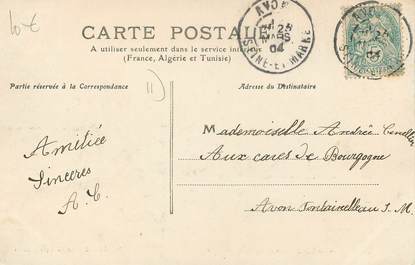 10 €
CARTE POSTALE
A utiliser seulement dans le service intérieur
(France, Algérie et Tunisie)
Partie réservée à la Correspondance
Adresse du Destinataire
11
AVON
28
MARS
04
SEINE-ET-MARNE
Amitiée
Sinceres
A. C.
Mademoiselle Andrée
Aux caves de Bourgogne
Avon Fontainebleau S. M.